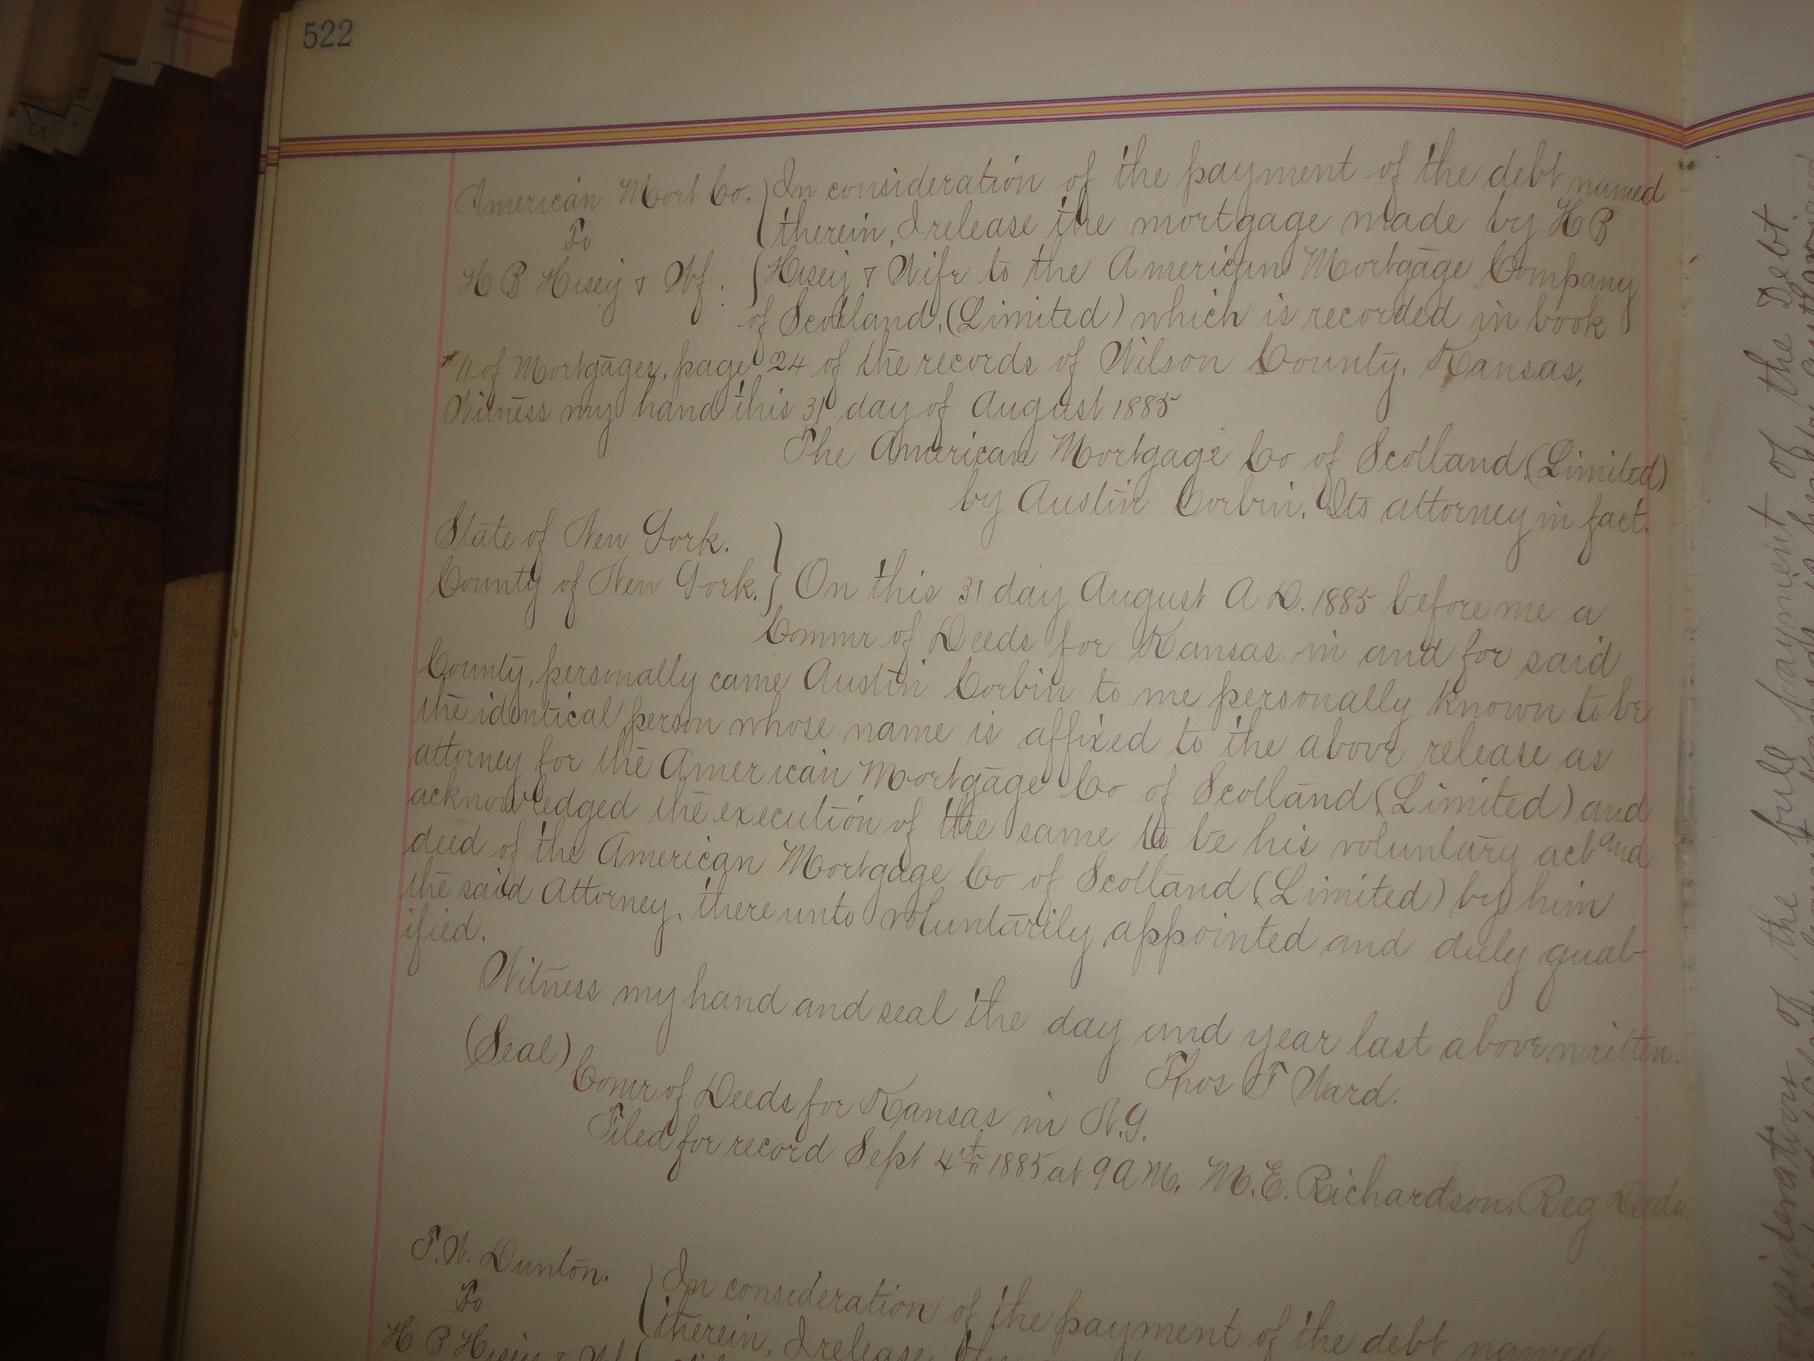 522
American Mort Co. In consideration of the payment of the debt named
To therein, I release the mortgage made by H B
H B Hisey & Wf. Hisey & Wife to the American Mortgage Company
of Scotland, (Limited) which is recorded in book
"11 of Mortgages, page 24 of the records of Wilson County, Kansas,
Witness my hand this 31 day of August 1885
The American Mortgage Co of Scotland (Limited)
by Austin Corbin, Its attorney in fact.
State of New York.
County of New York. On this 31 day August A D. 1885 before me a
Commr of Deeds for Kansas in and for said
County, personally came Austin Corbin to me personally known to be
the identical person whose name is affixed to the above release as
attorney for the American Mortgage Co of Scotland (Limited) and
acknowledged the execution of the same to be his voluntary act and
deed of the American Mortgage Co of Scotland (Limited) by him
the said Attorney, there unto voluntarily appointed and duly qual-
ified.
Witness my hand and seal the day and year last above written.
(Seal) Thos T Ward.
Comr of Deeds for Kansas in N.Y.
Filed for record Sept 4th 1885 at 9 A M. M. E. Richardson, Reg Deeds
T. W. Dunton. In consideration of the payment of the debt named
To therein, I release the
H B Hisey &
onsideration of the full payment of the Debt